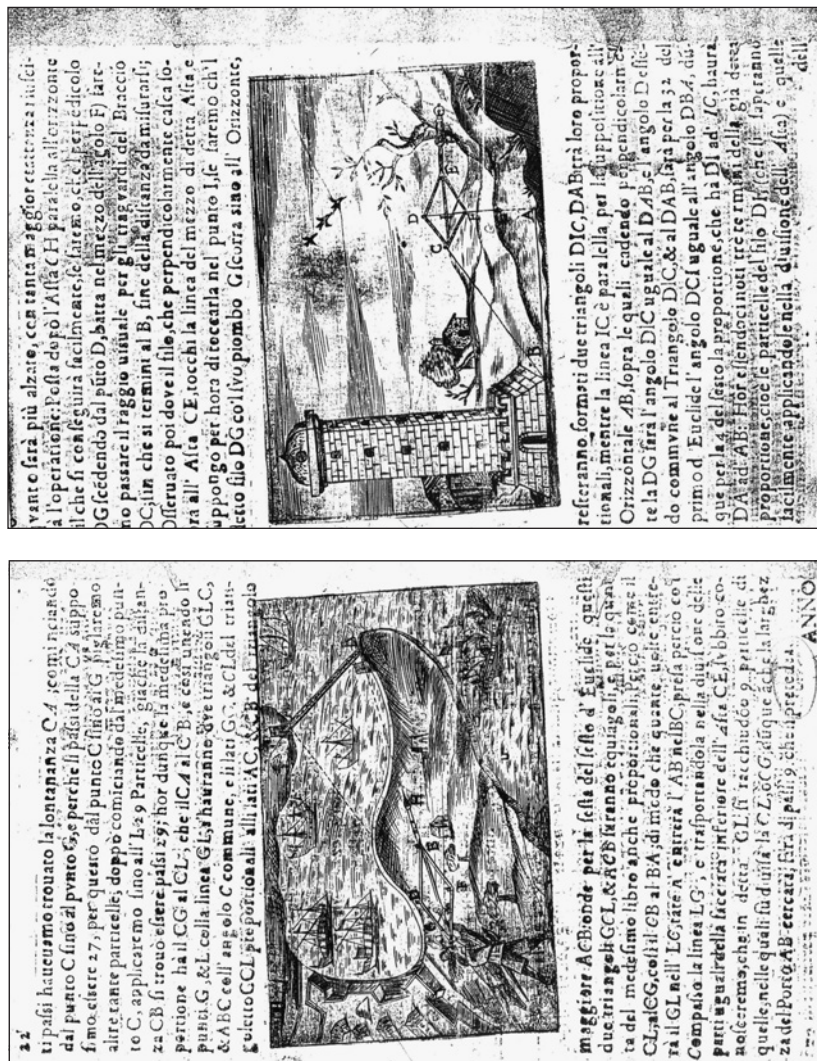 22
ti passi haueuamo trouato la lontananza CA; cominciando
dal punto C sino al punto G, e perche li passi della CA suppo
simo essere 27, per questo dal punto C sino al G pigliaremo
altre tante particelle; doppo comiciando dal medesimo pun-
to C, applicaremo sino all' L 29 Particelle, giache la distan-
za CB si trouò essere passi 29; hor dunque la medesima pro
portione ha il CG al CL, che il CA al CB, e cosi unendo li
punti G, & L colla linea GL, s'hauranno due triangoli GLC,
& ABC coll' angolo C commune, e li lati GC, & CL del trian-
goletto GCL proportionali alli lati AC, & CB del triangolo
maggiore ACB; onde per la sesta del sesto d' Euclide questi
due triangoli GCL, & ACB saranno equiagoli, e per la quar
ta del medesimo libro anche proportionali. Percio come il
CL, al CG, cosi il CB al BA; dimodo che quante uolte entre-
rà il GL nell' LC, tãte n' entrerà l' AB nel BC, presa percio co'l
Compasso la linea LG, e trasportandola nella diuisione delle
parti uguali della facciata inferiore dell' Asta CE, s'vbbiro co-
nosceremo, che in detta GL si racchiudõ 9 particelle di
quelle, nelle quali fù diuisa la CL, ò CG, duque ãche la larghez
za del Porto AB cercata, sarà di passi 9, che
ANNO
vanto sarà più alzato, con tanta maggior esattezza riusci-
à l'operatione: Posta dopo l' Asta CH paralella all'orizzonte
il che si conseguirà facilmente, se faremo, che il perpédicolo
DG scedendo dal púto D, batta nel mezzo dell'angolo F) fare-
mo passare il raggio uisuale per gli traguardi del Braccio
DC, sin che si termini al B, fine della distanza da misurarsi;
Osseruato poi dove il filo, che perpendicolarmente cala so-
ra all' Asta CE, tocchi la linea del mezzo di detta Asta, e
suppongo per hora di toccarla nel punto I, se faremo ch'l
detto filo DG co'l suo piombo G scorra sino all' Orizzonte,
resteranno formati due triangoli DIC, DAB trà loro propor-
tionali, mentre la linea IC è paralella per la suppositione all'
Orizzontale AB, sopra le quali cadendo perpendicolarmé-
te la DG farà l' angolo DIC uguale al DAB, e l' angolo D essé-
do commvne al Triangolo DIC, & al DAB, sarà per la 32 del
primo d' Euclide l' angolo DCI uguale all' angolo DBA, dũ-
que per la 4 del sesto la proportione, che hà DI ad IC, haurà
DA ad AB. Hor essendoci noti tre termini della già detta
proportione, cioè le particelle del filo DI
facilmente applicando, e nella diuisione dell' Asta) e quelle
dell'